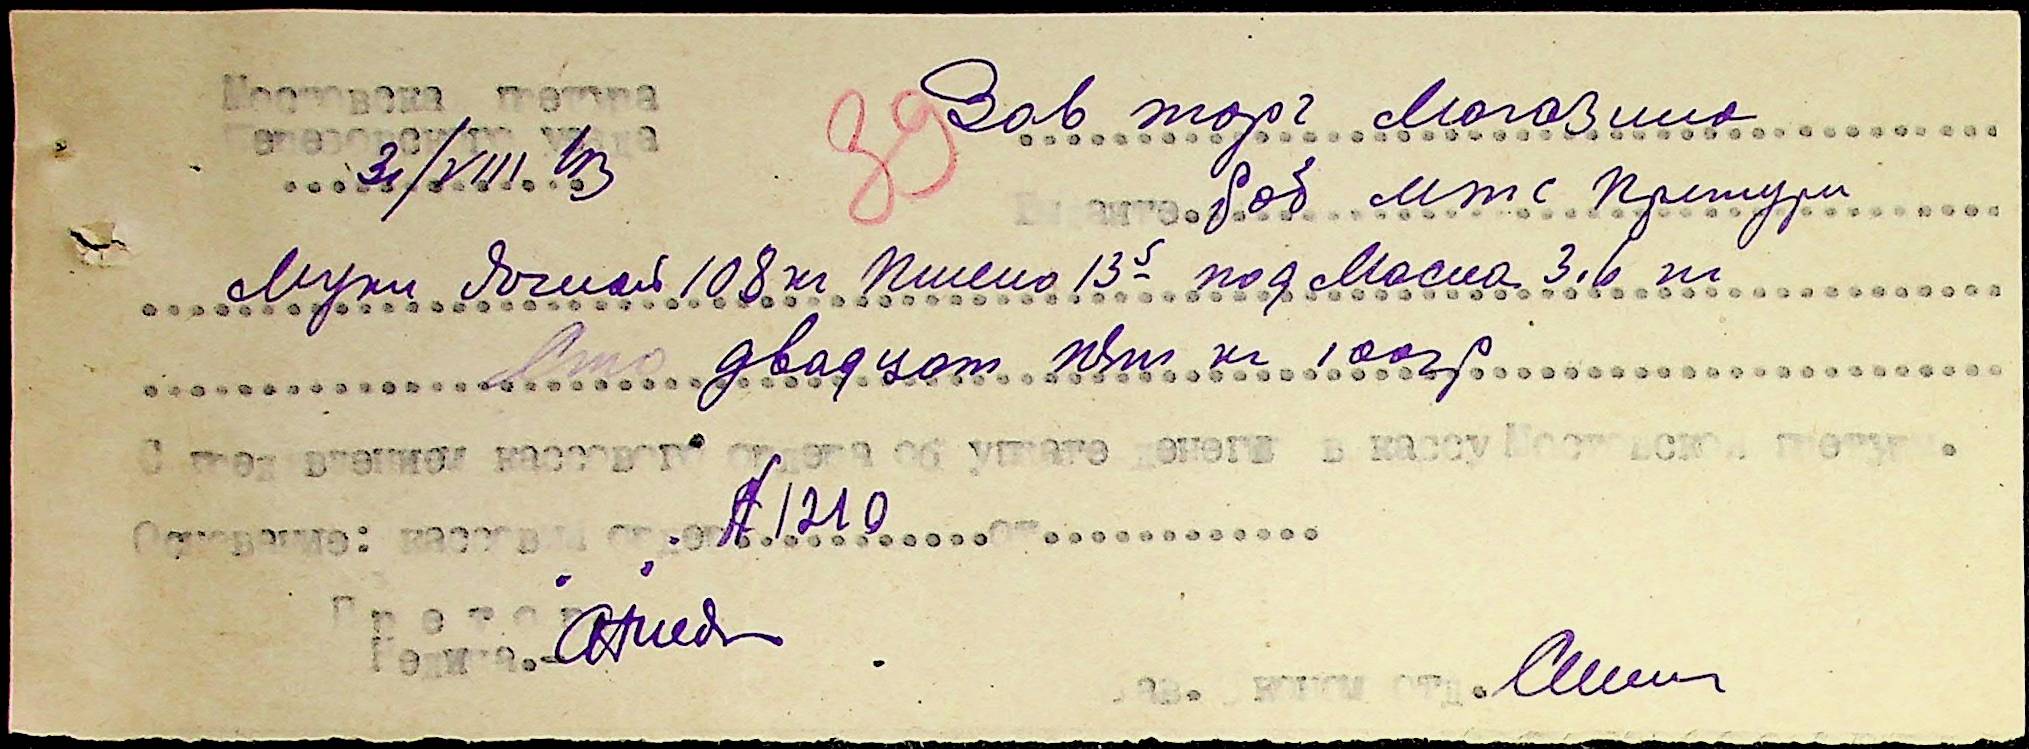 Мостовска претура
Березовского уезда
31/VIII 43
39
Зав торг Магазино
Выдайте. раб МТС Претури
Муки Ячной 108 кг Пшено 13⁵ под Масла 3.6 кг
Сто двадцат пят кг 100гр
С пред влением кассового ордера об уплате денег в кассу Мостовской претуры.
Основание: кассовый ордер № 1210 от
Претор
Зав. отд.